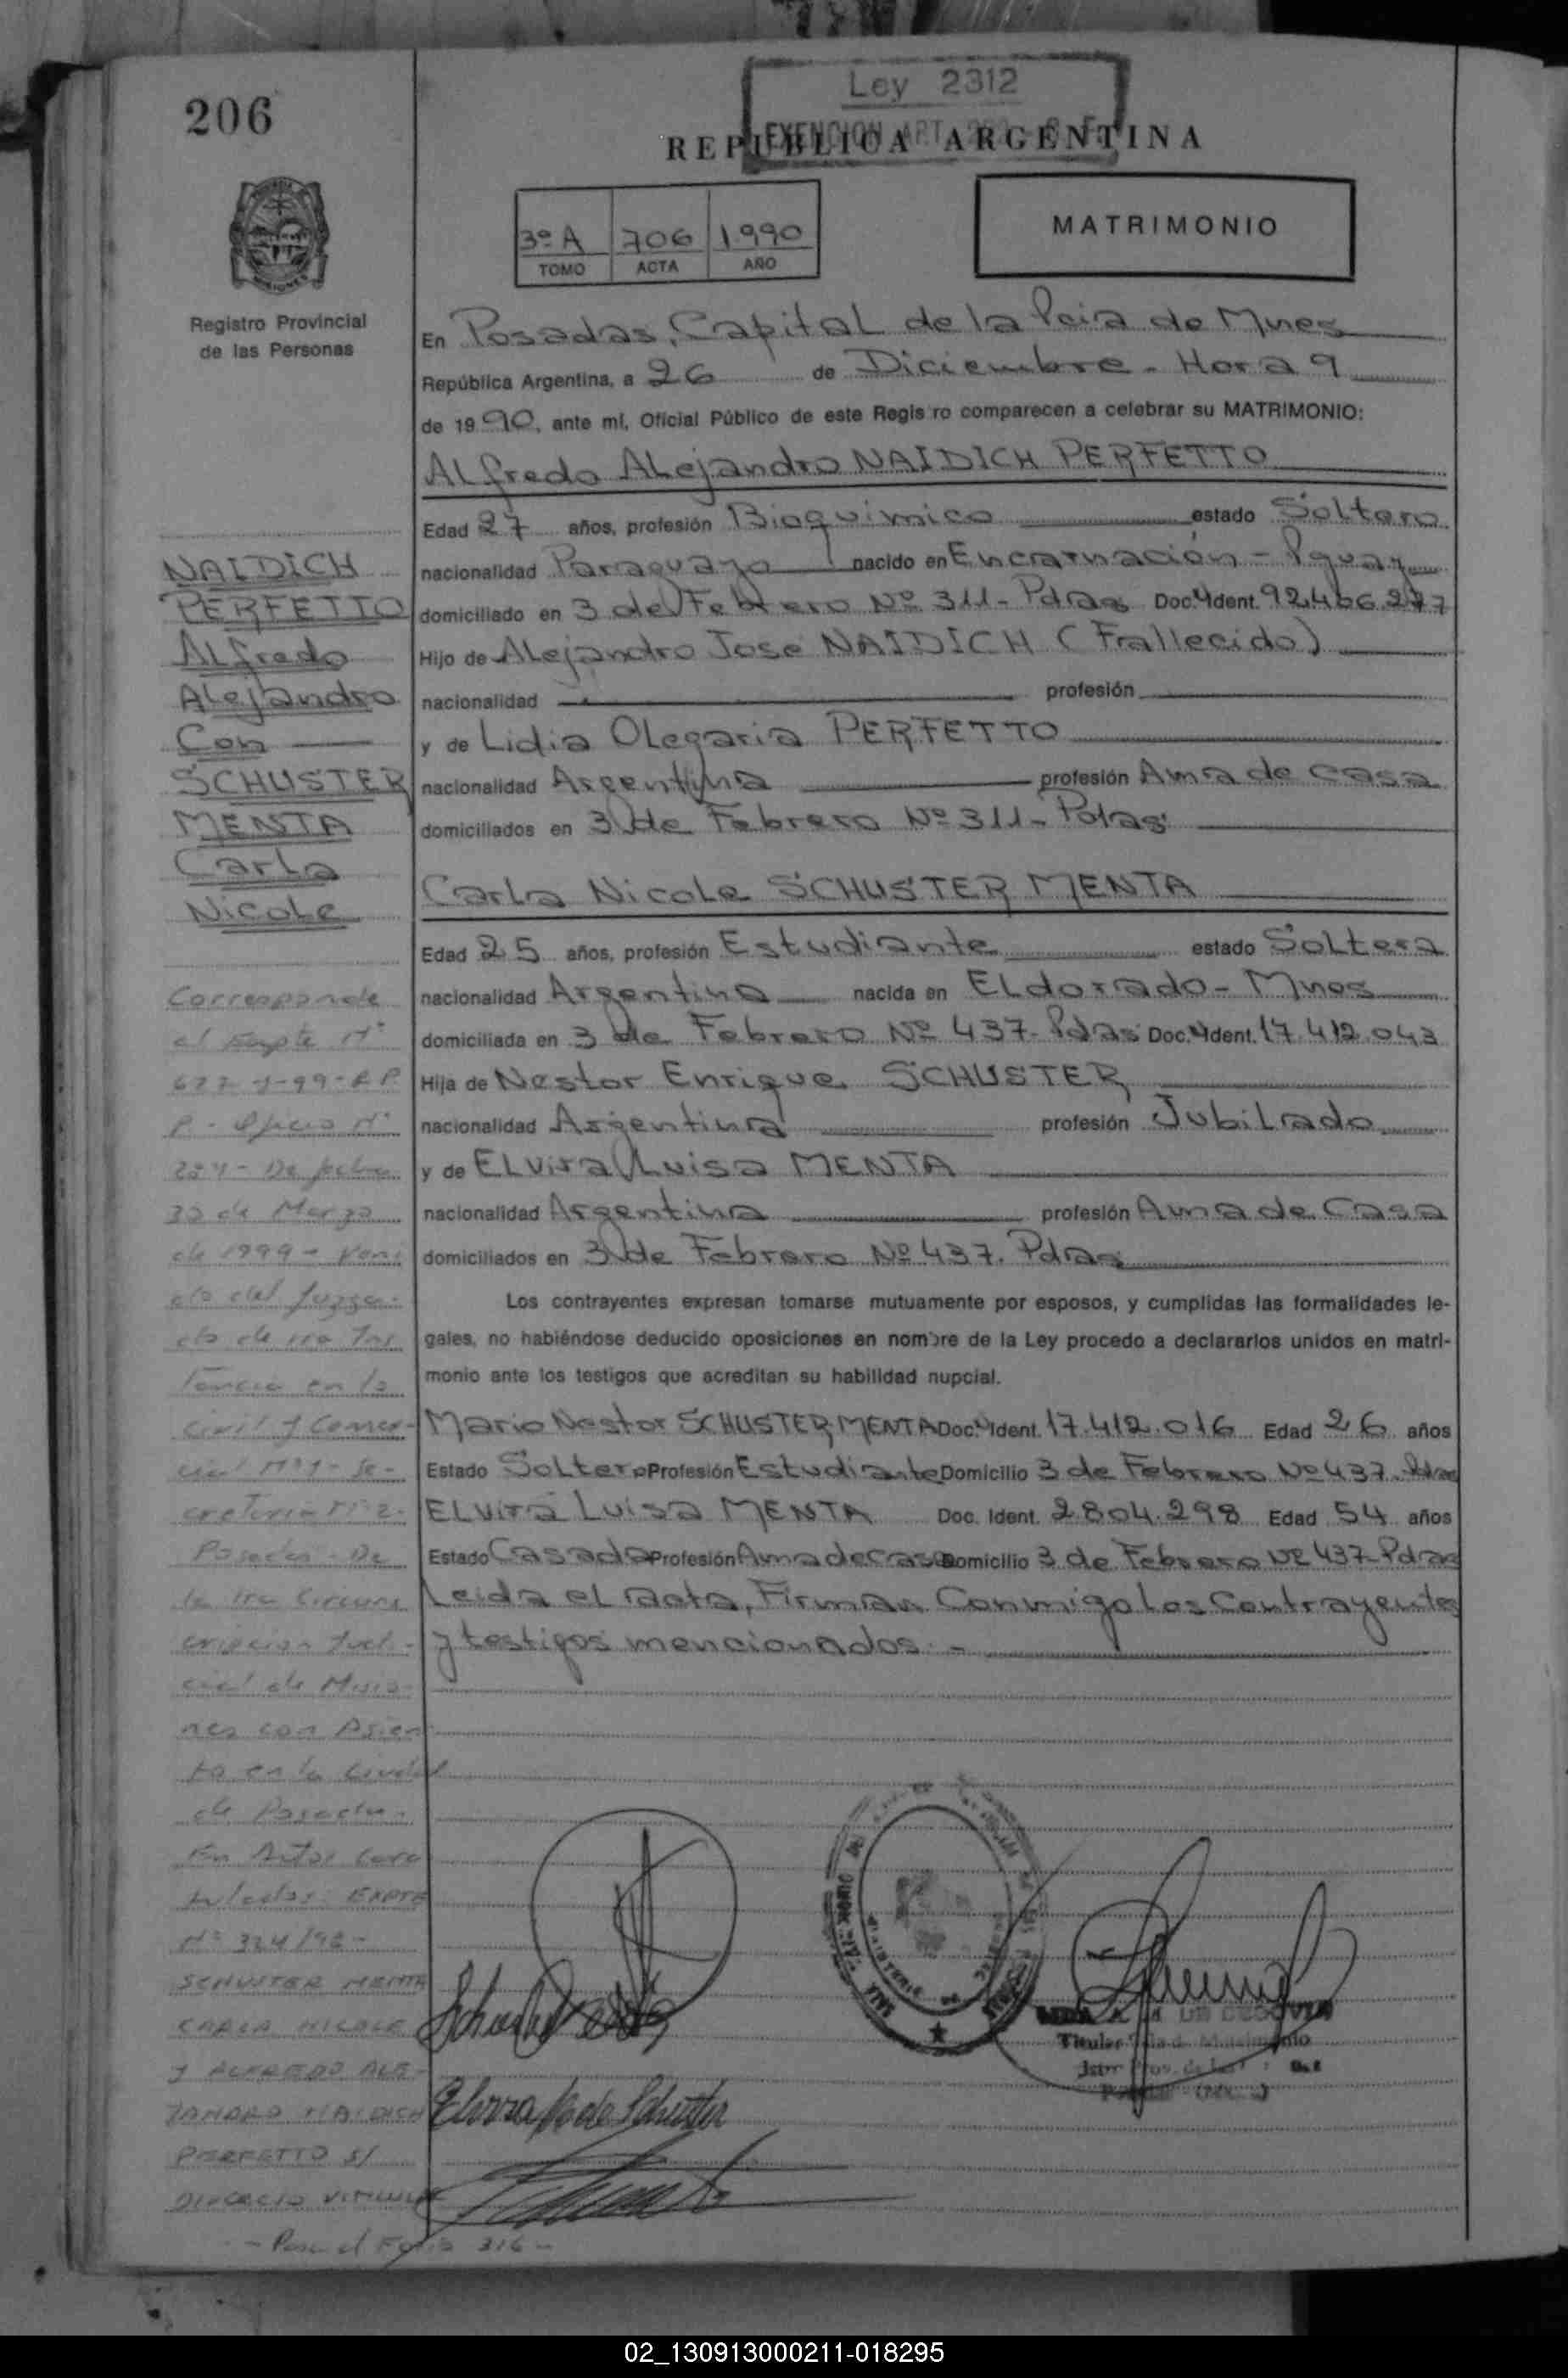 206
Ley 2312
EXENCION ART
REPUBLICA ARGENTINA
3º A 706 1.990
TOMO ACTA AÑO
MATRIMONIO
Registro Provincial
de las Personas
En Posadas, Capital de la Pcia de Mnes
República Argentina, a 26 de Diciembre - Hora 9
de 1990, ante mí, Oficial Público de este Registro comparecen a celebrar su MATRIMONIO:
Alfredo Alejandro NAIDICH PERFETTO
Edad 27 años, profesión Bioquimico estado Soltero
nacionalidad Paraguayo nacido en Encarnación - Pguay
domiciliado en 3 de Febrero Nº 311 - Pdas Doc. Ident. 92.466.277
Hijo de Alejandro Jose NAIDICH (Frallecido)
nacionalidad profesión
y de Lidia Olegaria PERFETTO
nacionalidad Argentina profesión Ama de casa
domiciliados en 3 de Febrero Nº 311 - Pdas
Carla Nicole SCHUSTER MENTA
Edad 25 años, profesión Estudiante estado Soltera
nacionalidad Argentina nacida en Eldorado - Mnes
domiciliada en 3 de Febrero Nº 437 - Pdas Doc. Ident. 17.412.043
Hija de Nestor Enrique SCHUSTER
nacionalidad Argentina profesión Jubilado
y de Elvira Luisa MENTA
nacionalidad Argentina profesión Ama de Casa
domiciliados en 3 de Febrero Nº 437. Pdas
Los contrayentes expresan tomarse mutuamente por esposos, y cumplidas las formalidades le-
gales, no habiéndose deducido oposiciones en nombre de la Ley procedo a declararlos unidos en matri-
monio ante los testigos que acreditan su habilidad nupcial.
Mario Nestor SCHUSTER MENTA Doc. Ident. 17.412.016 Edad 26 años
Estado Soltero Profesión Estudiante Domicilio 3 de Febrero Nº 437. Pdas
Elvira Luisa MENTA Doc. Ident. 2.804.298 Edad 54 años
Estado Casada Profesión Ama de casa Domicilio 3 de Febrero Nº 437 - Pdas
Leida el acta, Firman Conmigo Los Contrayentes
y testigos mencionados. -
NAIDICH
PERFETTO
Alfredo
Alejandro
Con
SCHUSTER
MENTA
Carla
Nicole
Corresponde
al Expte Nº
P - Oficio Nº
De fecha
30 de Marzo
de 1999 - Veni
do del Juzga-
do de 1ra Ins
tancia en lo
Civil y Comer-
cial Nº 1 - Se-
cretoria Nº 2 -
Posadas - De
la 1ra Circuns
cripcion Judi-
cial de Misio-
nes con Asien
to en la Ciudad
de Posadas -
En Autos cara
tulados: EXPTE
Nº 324/98 -
SCHUSTER MENTA
CARLA NICOLE
Y ALFREDO ALE-
JANDRO NAIDICH
PERFETTO S/
DIVORCIO VINCULAR
- Pasa al Folio 316 -
Elvira M de Schuster
02_130913000211-018295